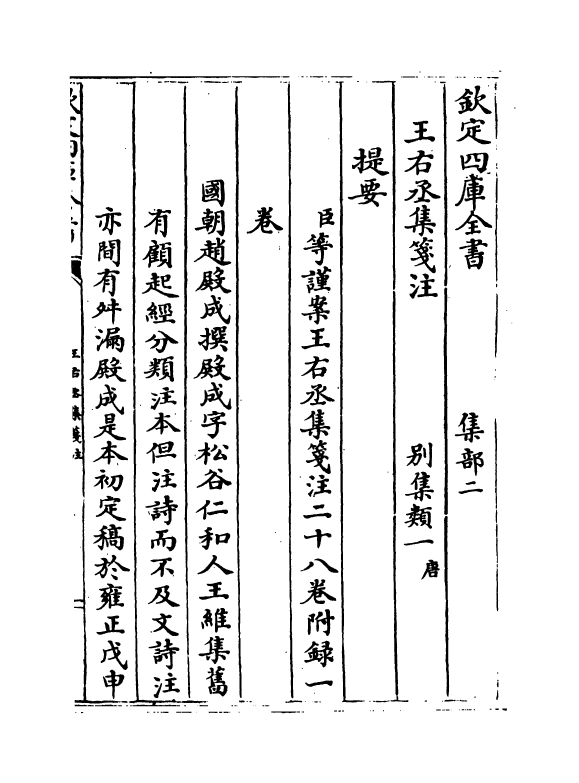 欽定四庫全書 集部二
王右丞集箋注 别集類一唐
提要
臣等謹案王右丞集箋注二十八卷附録一
卷
國朝趙殿成撰殿成字松谷仁和人王維集舊
有顧起經分類注本但注詩而不及文詩注
亦間有舛漏殿成是本初定稿於雍正戊申
欽定四庫全書
王右丞集箋注
一